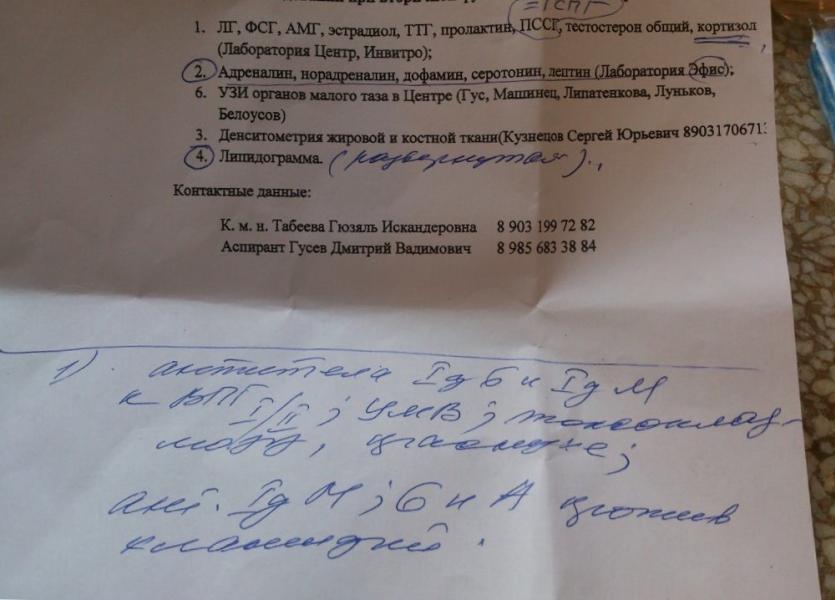 =ГСПГ
1. ЛГ, ФСГ, АМГ, эстрадиол, ТТГ, пролактин, ПССГ, тестостерон общий, кортизол
(Лаборатория Центр, Инвитро);
2. Адреналин, норадреналин, дофамин, серотонин, лептин (Лаборатория Эфис);
6. УЗИ органов малого таза в Центре (Гус, Машинец, Липатенкова, Луньков,
Белоусов)
3. Денситометрия жировой и костной ткани(Кузнецов Сергей Юрьевич 8903170671
4. Липидограмма. (развернутая).,
Контактные данные:
К. м. н. Табеева Гюзяль Искандеровна 8 903 199 72 82
Аспирант Гусев Дмитрий Вадимович 8 985 683 38 84
1) антитела Ig G и Ig M
к ВПГ I/II; ЦМВ; токсоплаз-
мозу,
ант. Ig M; G и A против
хламидий.